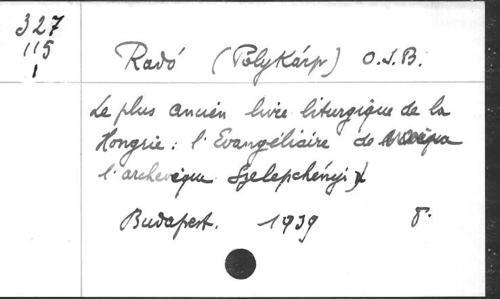 327
115
1
Radó (Polykárp) O.S.B.
Le plus ancien livre liturgique de la
Hongrie : l'Evangéliaire de
l'archevêque Szelepchényi
Budapest. 1939 8.